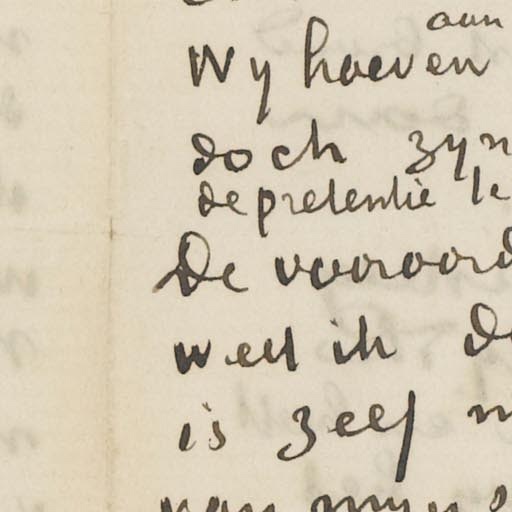 aan
Wy hoeven
doch zyn
de pretentie te
De vooroord
weet ik de
is zelf m
van myn